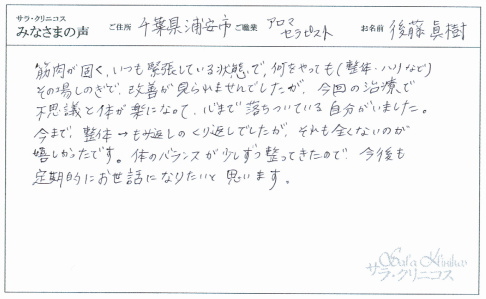 サラ・クリニコス
みなさまの声 ご住所 千葉県浦安市 ご職業 アロマセラピスト お名前 後藤眞樹
筋肉が固く、いつも緊張している状態で、何をやっても(整体・ハリなど)
その場しのぎで、改善が見られませんでしたが、今回の治療で
不思議と体が楽になって、心まで落ちついている自分がいました。
今まで、整体→もみ返しのくり返しでしたが、それも全くないのが
嬉しかったです。体のバランスが少しずつ整ってきたので、今後も
定期的にお世話になりたいと思います。
Sara Klinikos
サラ・クリニコス